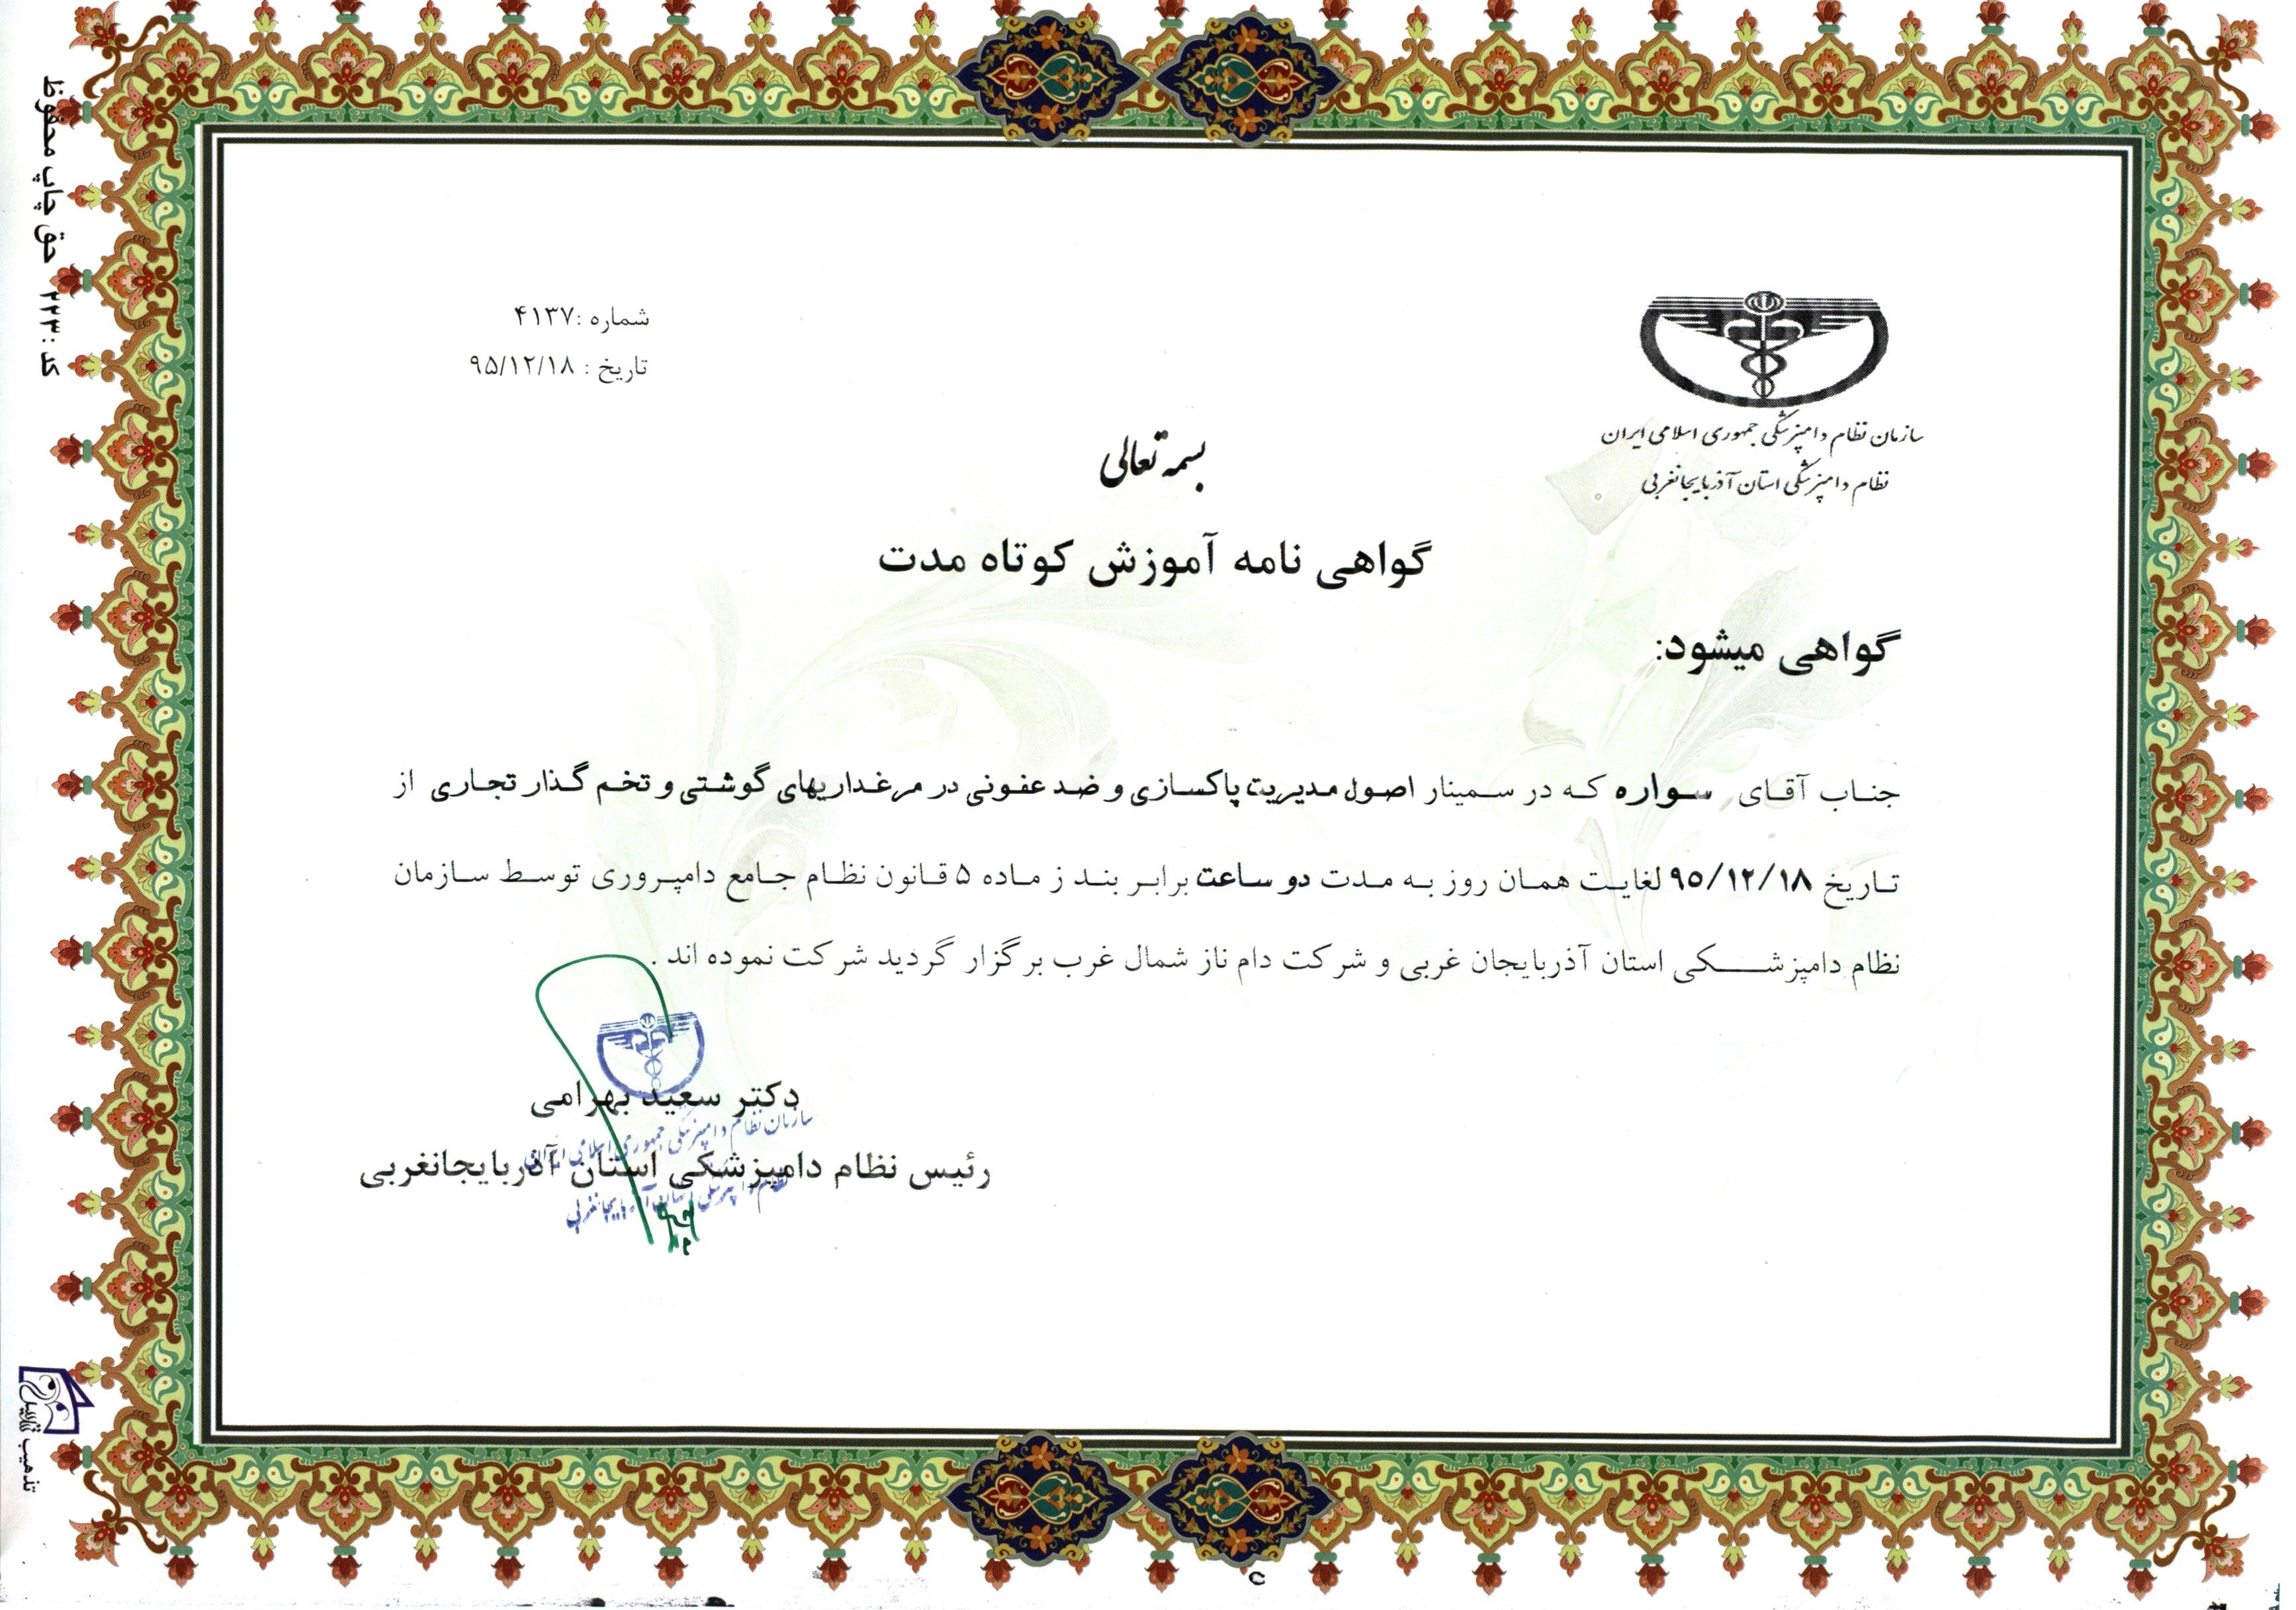 شماره :۴۱۳۷
تاریخ : ۹۵/۱۲/۱۸
سازمان نظام دامپزشکی جمهوری اسلامی ایران
نظام دامپزشکی استان آذربایجانغربی
بسمه تعالی
گواهی نامه آموزش کوتاه مدت
گواهی میشود:
جناب آقای سواره که در سمینار اصول مدیریت پاکسازی و ضد عفونی در مرغداریهای گوشتی و تخم گذار تجاری از
تاریخ ۹۵/۱۲/۱۸ لغایت همان روز به مدت دو ساعت برابر بند ز ماده ۵ قانون نظام جامع دامپروری توسط سازمان
نظام دامپزشکی استان آذربایجان غربی و شرکت دام ناز شمال غرب برگزار گردید شرکت نموده اند .
دکتر سعید بهرامی
سازمان نظام دامپزشکی جمهوری اسلامی ایران
رئیس نظام دامپزشکی استان آذربایجانغربی
نظام دامپزشکی استان آذربایجانغربی
کد : ۲۲۳ حق چاپ محفوظ
تذهیب